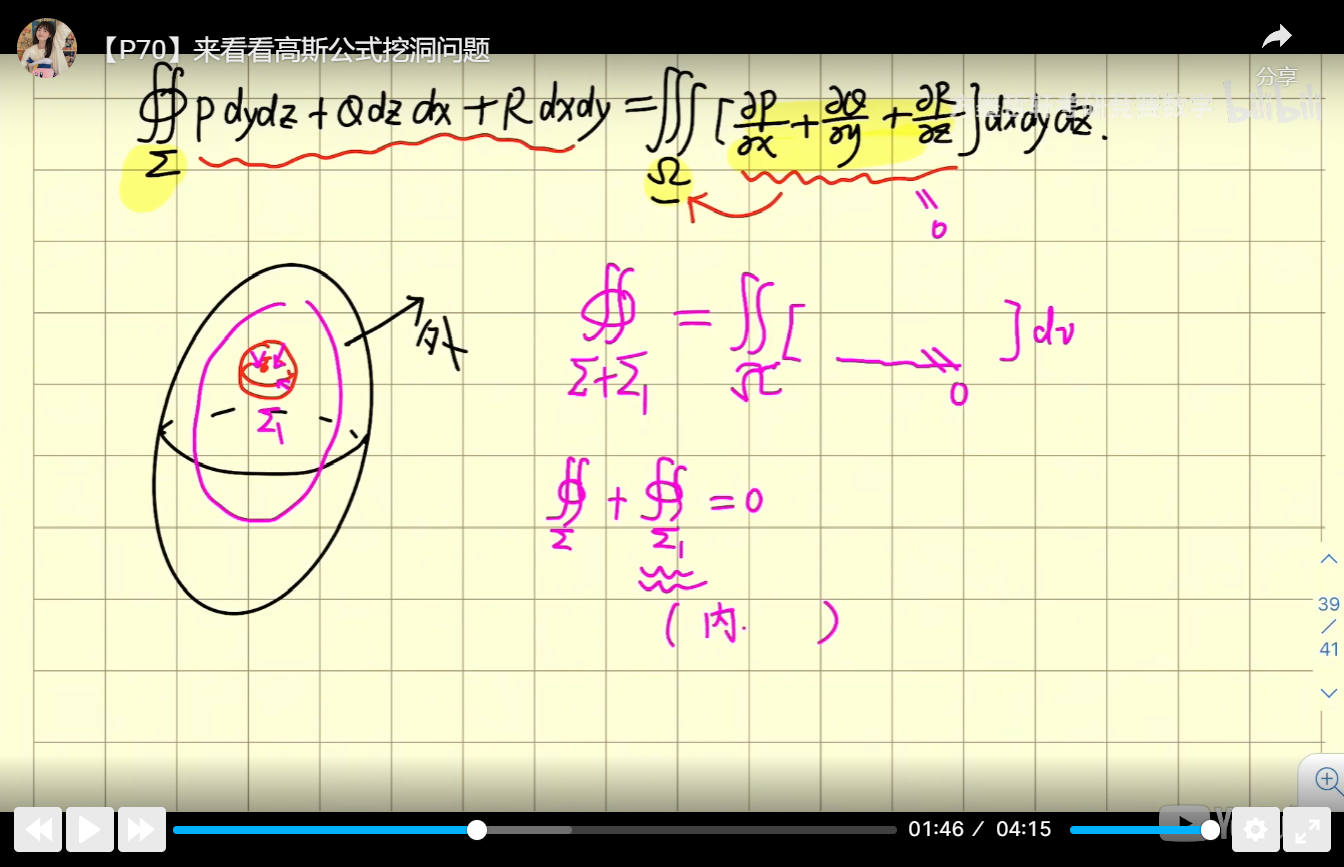 【P70】来看看高斯公式挖洞问题
分享
bilibili
∯ P dydz + Q dz dx + R dxdy = ∭ [ ∂P/∂x + ∂Q/∂y + ∂R/∂z ] dxdydz.
Σ Ω
0
外
Σ₁
∯ = ∭ [ ] dv
Σ+Σ₁ Ω 0
∯ + ∯ = 0
Σ Σ₁
(内. )
39
/
41
01:46 / 04:15